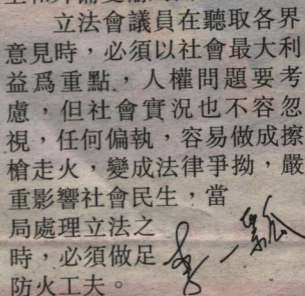 立法會議員在聽取各界
意見時，必須以社會最大利
益爲重點，人權問題要考
慮，但社會實況也不容忽
視，任何偏執，容易做成擦
槍走火，變成法律爭拗，嚴
重影響社會民生，當
局處理立法之
時，必須做足
防火工夫。
李一瓢